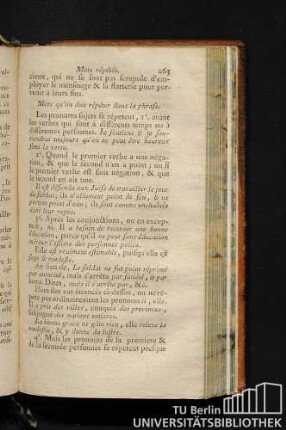 Mots répétés. 263
cieux, qui ne se font pas scrupule d'em-
ployer le mensonge & la flatterie pour par-
venir à leurs fins.
Mots qu'on doit répéter dans la phrase.
Les pronoms sujets se répetent, 1°. avant
les verbes qui sont à différents temps ou à
différentes personnes. Je soutiens & je sou-
tiendrai toujours qu'on ne peut être heureux
sans la vertu.
2°. Quand le premier verbe a une néga-
tion, & que le second n'en a point; ou si
le premier verbe est sans négation, & que
le second en ait une.
Il est défendu aux Juifs de travailler le jour
du sabbat, ils n'allument point de feu, & ne
portent point d'eau; ils sont comme enchaînés
dans leur repos.
3°. Après les conjonctions, on en excep-
te &, ni. Il a besoin de recevoir une bonne
éducation, parce qu'il ne peut sans éducation
attirer l'estime des personnes polies.
Elle est vraiment estimable, puisqu'elle est
sage & modeste.
Au lieu de, Le soldat ne fut point réprimé
par autorité, mais s'arrêta par satiété, & par
honte. Dites, mais il s'arrêta par, &c.
Hors des cas énoncés ci-dessus, on ne ré-
pete pas ordinairement les pronoms il, elle.
Il a pris des villes, conquis des provinces,
subjugué des nations entieres.
La bonne grace ne gâte rien, elle releve la
modestie, & y donne du lustre.
4°. Mais les pronoms de la premiere &
de la seconde personnes se répetent presque
TU Berlin
UNIVERSITÄTSBIBLIOTHEK